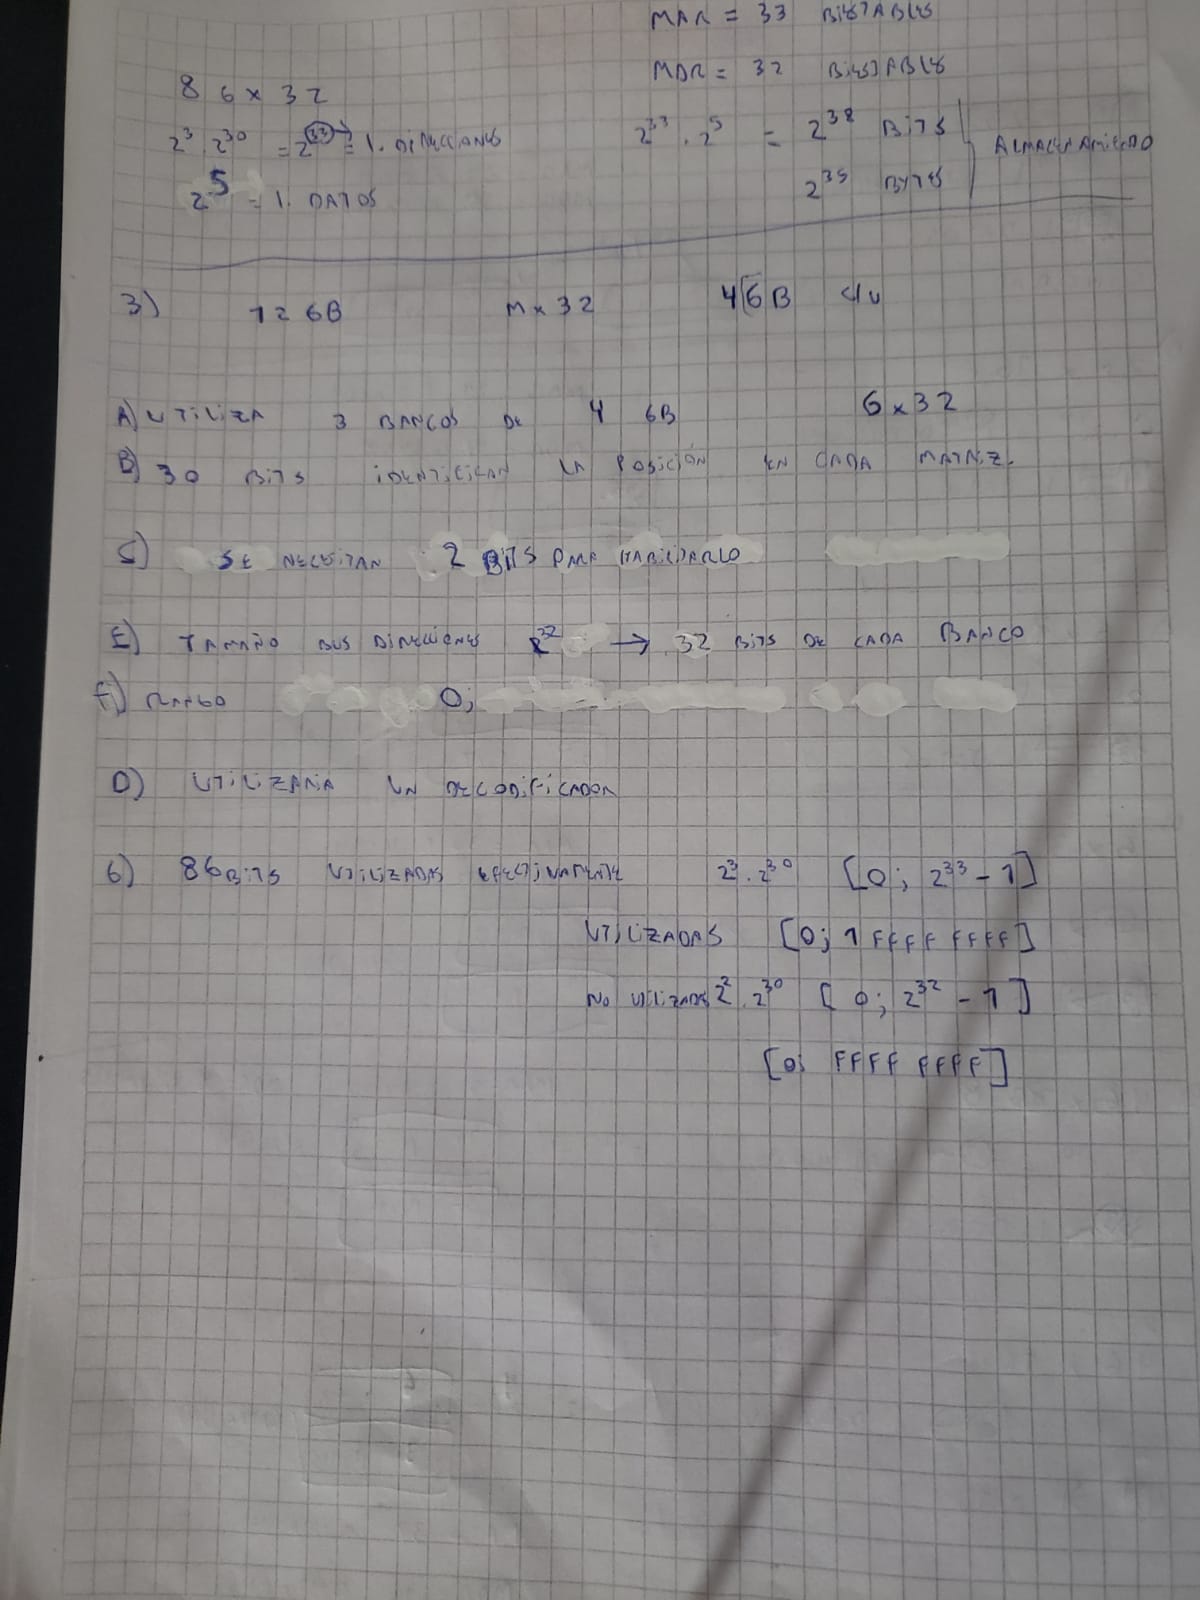 MAR = 33 BIESTABLES
MDR = 32 BIESTABLES
8 G x 32
2^3 . 2^30 = 2^33 → = L. DIRECCIONES
2^5 = L. DATOS
2^33 . 2^5 = 2^38 BITS
2^35 BYTES
ALMACENAMIENTO
3) 12 GB M x 32 4 GB c/u
A) UTILIZA 3 BANCOS DE 4 GB G x 32
B) 30 BITS IDENTIFICAN LA POSICIÓN EN CADA MATRIZ.
C) SE NECESITAN 2 BITS PARA HABILITARLO
E) TAMAÑO BUS DIRECCIONES 2^32 → 32 BITS DE CADA BANCO
F) RANGO 0;
D) UTILIZARIA UN DECODIFICADOR
G) 8 G BITS UTILIZADAS EFECTIVAMENTE 2^3 . 2^30 [0; 2^33 - 1]
UTILIZADAS [0; 1 FFFF FFFF]
NO UTILIZADAS 2^2 . 2^30 [0; 2^32 - 1]
[0; FFFF FFFF]